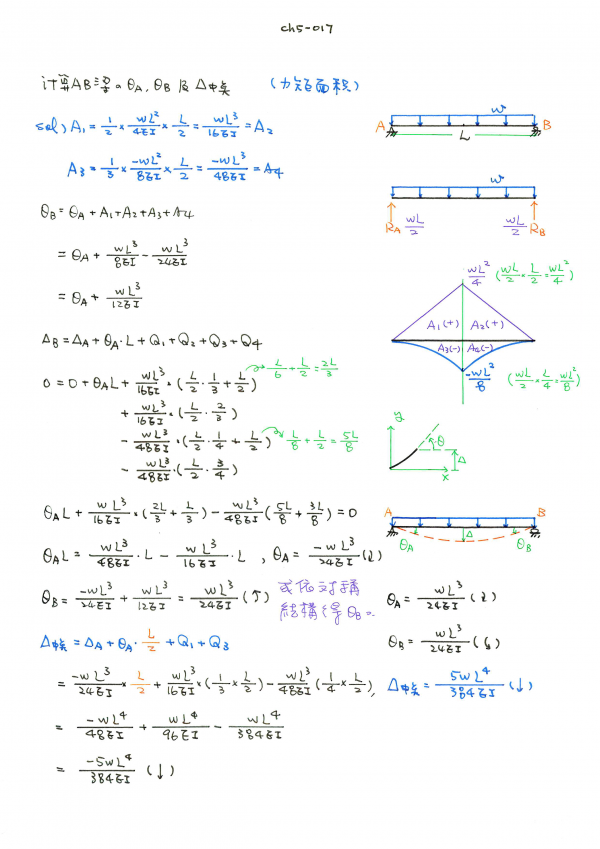 ch5-017
計算AB梁の θA, θB 及 Δ中央 (力矩面積)
sol) A1 = 1/2 × wL²/4EI × L/2 = wL³/16EI = A2
A3 = 1/3 × -wL²/8EI × L/2 = -wL³/48EI = A4
θB = θA + A1 + A2 + A3 + A4
= θA + wL³/8EI - wL³/24EI
= θA + wL³/12EI
ΔB = ΔA + θA · L + Q1 + Q2 + Q3 + Q4
0 = 0 + θAL + wL³/16EI × (L/2 · 1/3 + L/2) → L/6 + L/2 = 2L/3
+ wL³/16EI × (L/2 · 2/3)
- wL³/48EI × (L/2 · 1/4 + L/2) → L/8 + L/2 = 5L/8
- wL³/48EI · (L/2 · 3/4)
θAL + wL³/16EI × (2L/3 + L/3) - wL³/48EI (5L/8 + 3L/8) = 0
θAL = wL³/48EI · L - wL³/16EI · L , θA = -wL³/24EI (↙)
θB = -wL³/24EI + wL³/12EI = wL³/24EI (↑) 或依対稱
結構得 θB = ..
Δ中央 = ΔA + θA · L/2 + Q1 + Q3
= -wL³/24EI × L/2 + wL³/16EI × (1/3 × L/2) - wL³/48EI (1/4 × L/2)
= -wL⁴/48EI + wL⁴/96EI - wL⁴/384EI
= -5wL⁴/384EI (↓)
w
A B
L
w
RA wL/2 wL/2 RB
wL²/4 (wL/2 × L/2 = wL²/4)
A1(+) A2(+)
A3(-) A4(-)
-wL²/8 (wL/2 × L/4 = wL²/8)
y
θ
Δ
x
A B
θA Δ θB
θA = wL³/24EI (↙)
θB = wL³/24EI (↳)
Δ中央 = 5wL⁴/384EI (↓)